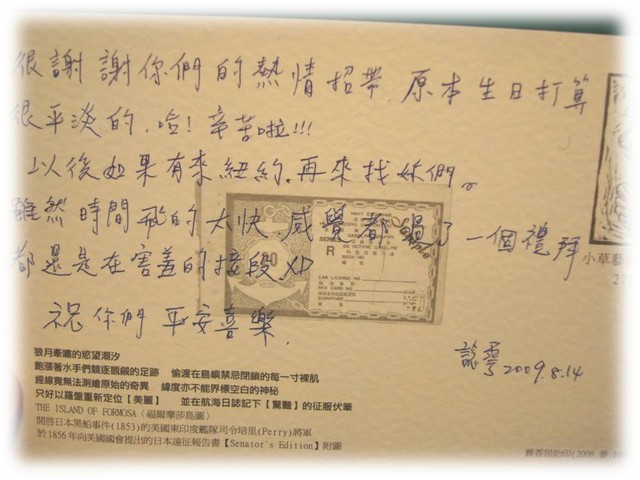 很謝謝你們的熱情招帶, 原本生日打算
很平淡的. 哈! 辛苦啦!!!
以後如果有來紐約, 再來找妹們。
雖然時間飛的太快, 感覺都過了一個禮拜
都還是在害羞的接段 XD
祝你們 平安喜樂.
2009.8.14
小草藝
狼月牽嘯的慾望潮汐
飽漲著水手們競逐覬覦的足跡 偷渡在島嶼禁忌閉鎖的每一寸裸肌
經線竟無法測繪原始的奇異 緯度亦不能界標空白的神秘
只好以羅盤重新定位【美麗】 並在航海日誌記下【驚豔】的征服伏筆
THE ISLAND OF FORMOSA〈福爾摩莎島圖〉
開啓日本黑船事件(1853)的美國東印度艦隊司令培里(Perry)將軍
於1856年向美國國會提出的日本遠征報告書【Senator's Edition】附圖